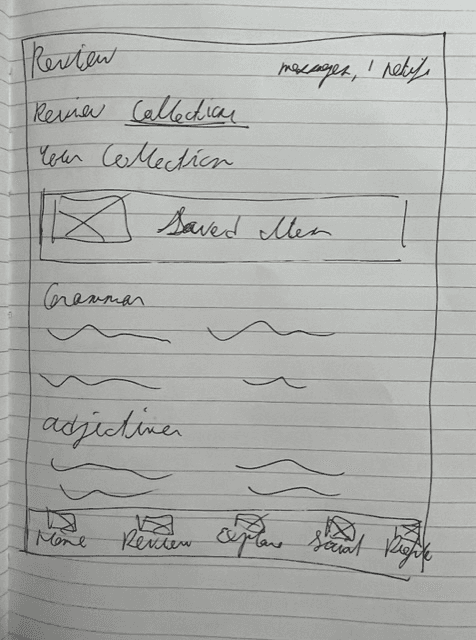 Review messages, notifs
Review Collection
Your Collection
Saved Item
Grammar
adjectives
Home Review Explore Social Profile